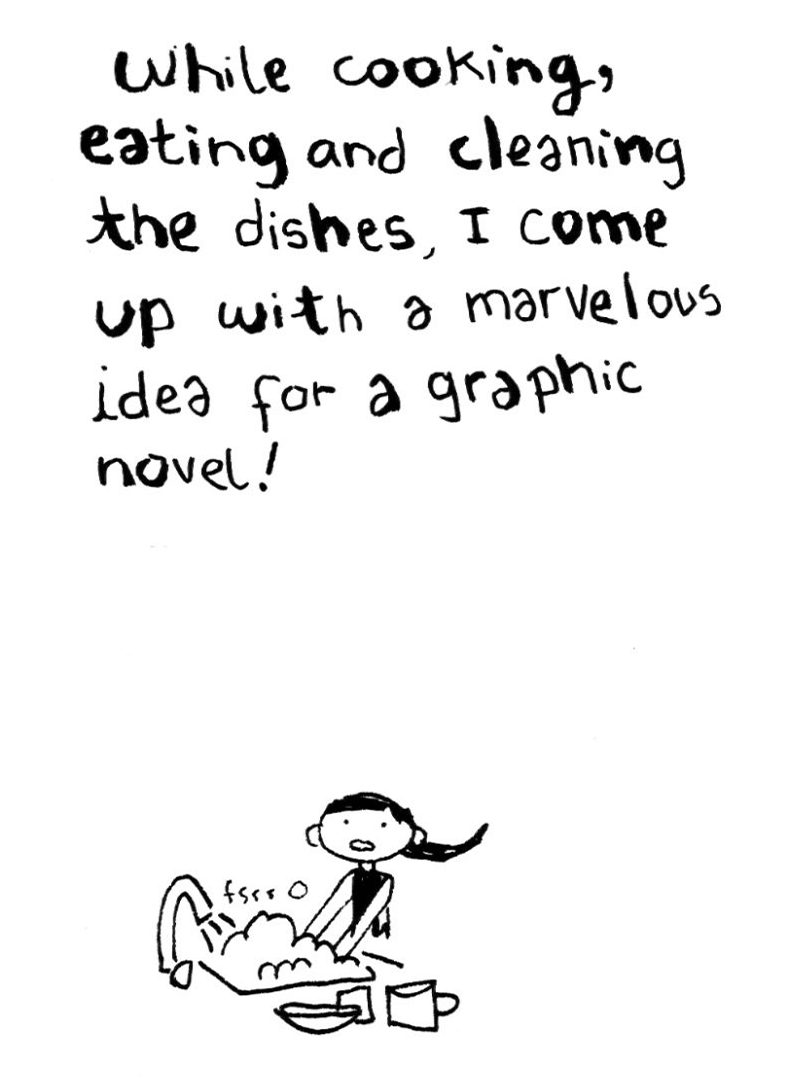 While cooking,
eating and cleaning
the dishes, I come
up with a marvelous
idea for a graphic
novel!